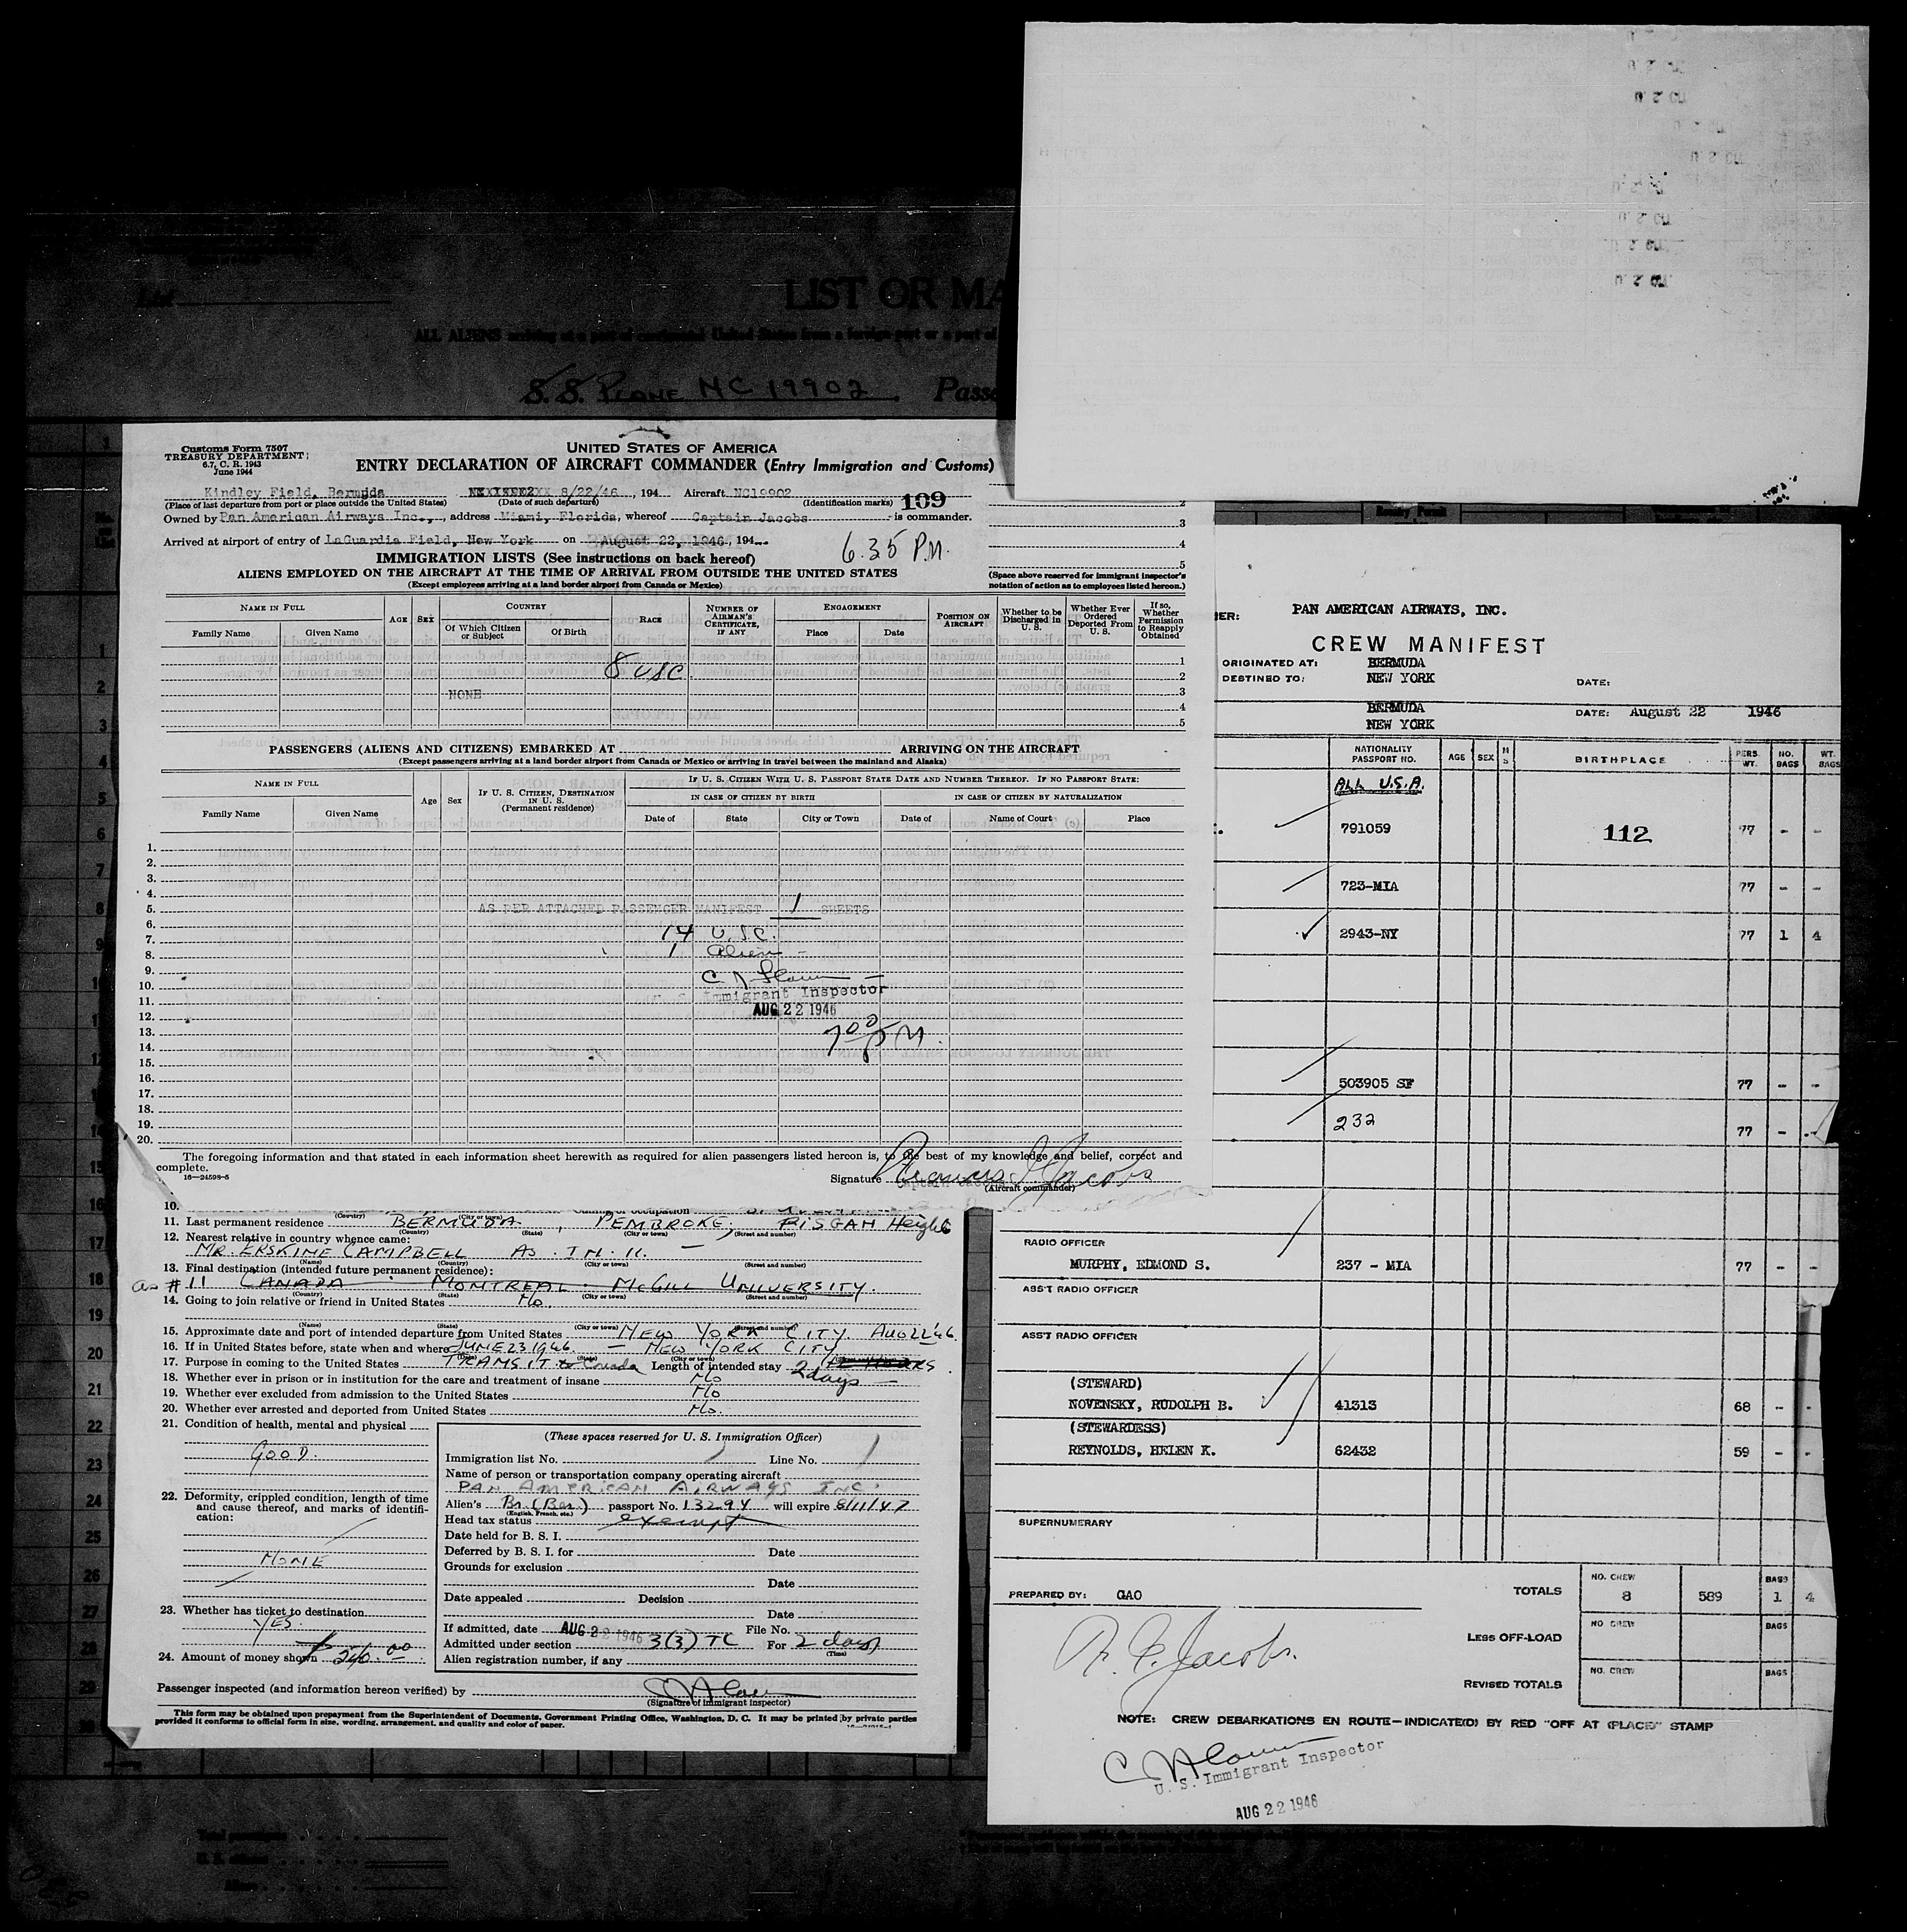 LIST OR MA
ALL ALIENS arriving at a port of continental United States from a foreign port or a port of
S. S. PLANE NC 19902. Passe
Customs Form 7507
TREASURY DEPARTMENT
6.7, C. R. 1943
June 1944
UNITED STATES OF AMERICA
ENTRY DECLARATION OF AIRCRAFT COMMANDER (Entry Immigration and Customs)
Kindley Field, Bermuda 8/22/46, 194 Aircraft NC19902
(Place of last departure from port or place outside the United States) (Date of such departure) (Identification marks) 109
Owned by Pan American Airways Inc., address Miami, Florida, whereof Captain Jacobs is commander.
Arrived at airport of entry of LaGuardia Field, New York on August 22, 1946, 194
6.35 P.M.
IMMIGRATION LISTS (See instructions on back hereof)
ALIENS EMPLOYED ON THE AIRCRAFT AT THE TIME OF ARRIVAL FROM OUTSIDE THE UNITED STATES
(Except employees arriving at a land border airport from Canada or Mexico)
2
3
4
5
(Space above reserved for immigrant inspector's
notation of action as to employees listed hereon.)
NAME IN FULL
Family Name Given Name
AGE SEX
COUNTRY
Of Which Citizen or Subject Of Birth
RACE
NUMBER OF AIRMAN'S CERTIFICATE, IF ANY
ENGAGEMENT
Place Date
POSITION ON AIRCRAFT
Whether to be Discharged in U. S.
Whether Ever Ordered Deported From U. S.
If so, Whether Permission to Reapply Obtained
8 USC.
NONE
1
2
3
4
5
PASSENGERS (ALIENS AND CITIZENS) EMBARKED AT ARRIVING ON THE AIRCRAFT
(Except passengers arriving at a land border airport from Canada or Mexico or arriving in travel between the mainland and Alaska)
NAME IN FULL
Family Name Given Name
Age Sex
IF U. S. CITIZEN, DESTINATION IN U. S. (Permanent residence)
IF U. S. CITIZEN WITH U. S. PASSPORT STATE DATE AND NUMBER THEREOF. IF NO PASSPORT STATE:
IN CASE OF CITIZEN BY BIRTH IN CASE OF CITIZEN BY NATURALIZATION
Date of State City or Town Date of Name of Court Place
1.
2.
3.
4.
5. AS PER ATTACHED PASSENGER MANIFEST 1 SHEETS
6.
7. 14 U.S.C.
8. 1 Alien
9.
10.
11. Immigrant Inspector
12. AUG 22 1946
13. 7 00 PM.
14.
15.
16.
17.
18.
19.
20.
The foregoing information and that stated in each information sheet herewith as required for alien passengers listed hereon is, to the best of my knowledge and belief, correct and
complete.
16—24598-5
Signature Jacobs
Captain Jacobs
(Aircraft commander)
10.
11. Last permanent residence BERMUDA, PEMBROKE, PISGAH Height
(Country) (State) (City or town) (Street and number)
12. Nearest relative in country whence came:
MR. ERSKINE CAMPBELL AS IN 11.
(Name) (Country) (City or town) (Street and number)
13. Final destination (intended future permanent residence):
as #11 CANADA MONTREAL McGILL UNIVERSITY.
(Country) (State) (City or town) (Street and number)
14. Going to join relative or friend in United States No.
(Name) (State) (City or town) (Street and number)
15. Approximate date and port of intended departure from United States NEW YORK CITY. AUG 22 '46.
16. If in United States before, state when and where JUNE 23 1946. — NEW YORK CITY
(Date) (State) (City or town)
17. Purpose in coming to the United States TRANSIT to Canada Length of intended stay 2 days
18. Whether ever in prison or in institution for the care and treatment of insane No
19. Whether ever excluded from admission to the United States No
20. Whether ever arrested and deported from United States No.
21. Condition of health, mental and physical
GOOD.
22. Deformity, crippled condition, length of time
and cause thereof, and marks of identifi-
cation:
NONE
23. Whether has ticket to destination
YES.
24. Amount of money shown
(These spaces reserved for U. S. Immigration Officer)
Immigration list No. 1 Line No. 1
Name of person or transportation company operating aircraft
PAN AMERICAN AIRWAYS INC.
Alien's Br. (Ber.) passport No. 13294 will expire 8/11/47
(English, French, etc.)
Head tax status exempt
Date held for B. S. I.
Deferred by B. S. I. for Date
Grounds for exclusion
Date
Date appealed Decision
Date
If admitted, date AUG 22 1946 File No.
Admitted under section 3(3) TC For 2 days
(Time)
Alien registration number, if any
Passenger inspected (and information hereon verified) by
(Signature of immigrant inspector)
This form may be obtained upon prepayment from the Superintendent of Documents, Government Printing Office, Washington, D. C. It may be printed by private parties
provided it conforms to official form in size, wording, arrangement, and quality and color of paper.
PAN AMERICAN AIRWAYS, INC.
CREW MANIFEST
ORIGINATED AT: BERMUDA
DESTINED TO: NEW YORK DATE:
BERMUDA DATE: August 22 1946
NEW YORK
NATIONALITY PASSPORT NO. AGE SEX BIRTHPLACE PERS. WT. NO. BAGS WT. BAGS
ALL U.S.A.
791059 112 77 - -
723-MIA 77 - -
2943-NY 77 1 4
503905 SF 77 - -
232 77 - -
RADIO OFFICER
MURPHY, EDMOND S. 237 - MIA 77 - -
ASS'T RADIO OFFICER
ASS'T RADIO OFFICER
(STEWARD)
NOVENSKY, RUDOLPH B. 41313 68 - -
(STEWARDESS)
REYNOLDS, HELEN K. 62432 59 - -
SUPERNUMERARY
PREPARED BY: GAO
TOTALS NO. CREW 8 589 BAGS 1 4
LESS OFF-LOAD NO CREW BAGS
REVISED TOTALS NO. CREW BAGS
Jacobs.
NOTE: CREW DEBARKATIONS EN ROUTE—INDICATE(D) BY RED "OFF AT (PLACE)" STAMP
U. S. Immigrant Inspector
AUG 22 1946